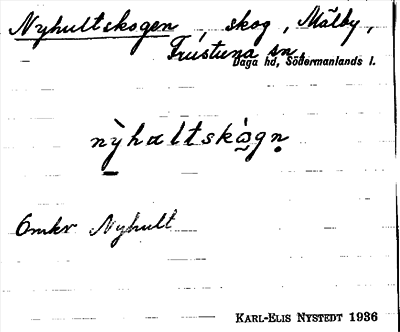 Nyhultskogen, skog, Mälby,
Frustuna sn,
Daga hd, Södermanlands l.
nỳhaltskògn̥
Omkr Nyhult
KARL-ELIS NYSTEDT 1936